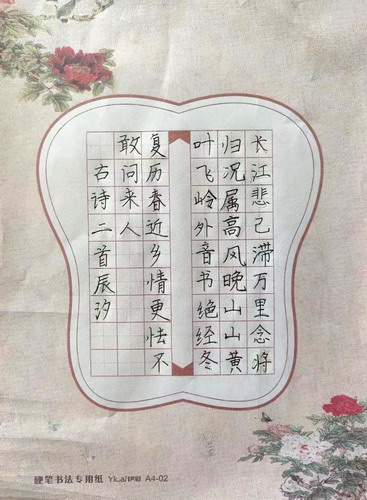 长江悲已滞万里念将
归况属高风晚山山黄
叶飞岭外音书绝经冬
复历春近乡情更怯不
敢问来人
古诗二首辰汐
硬笔书法专用纸 A4-02